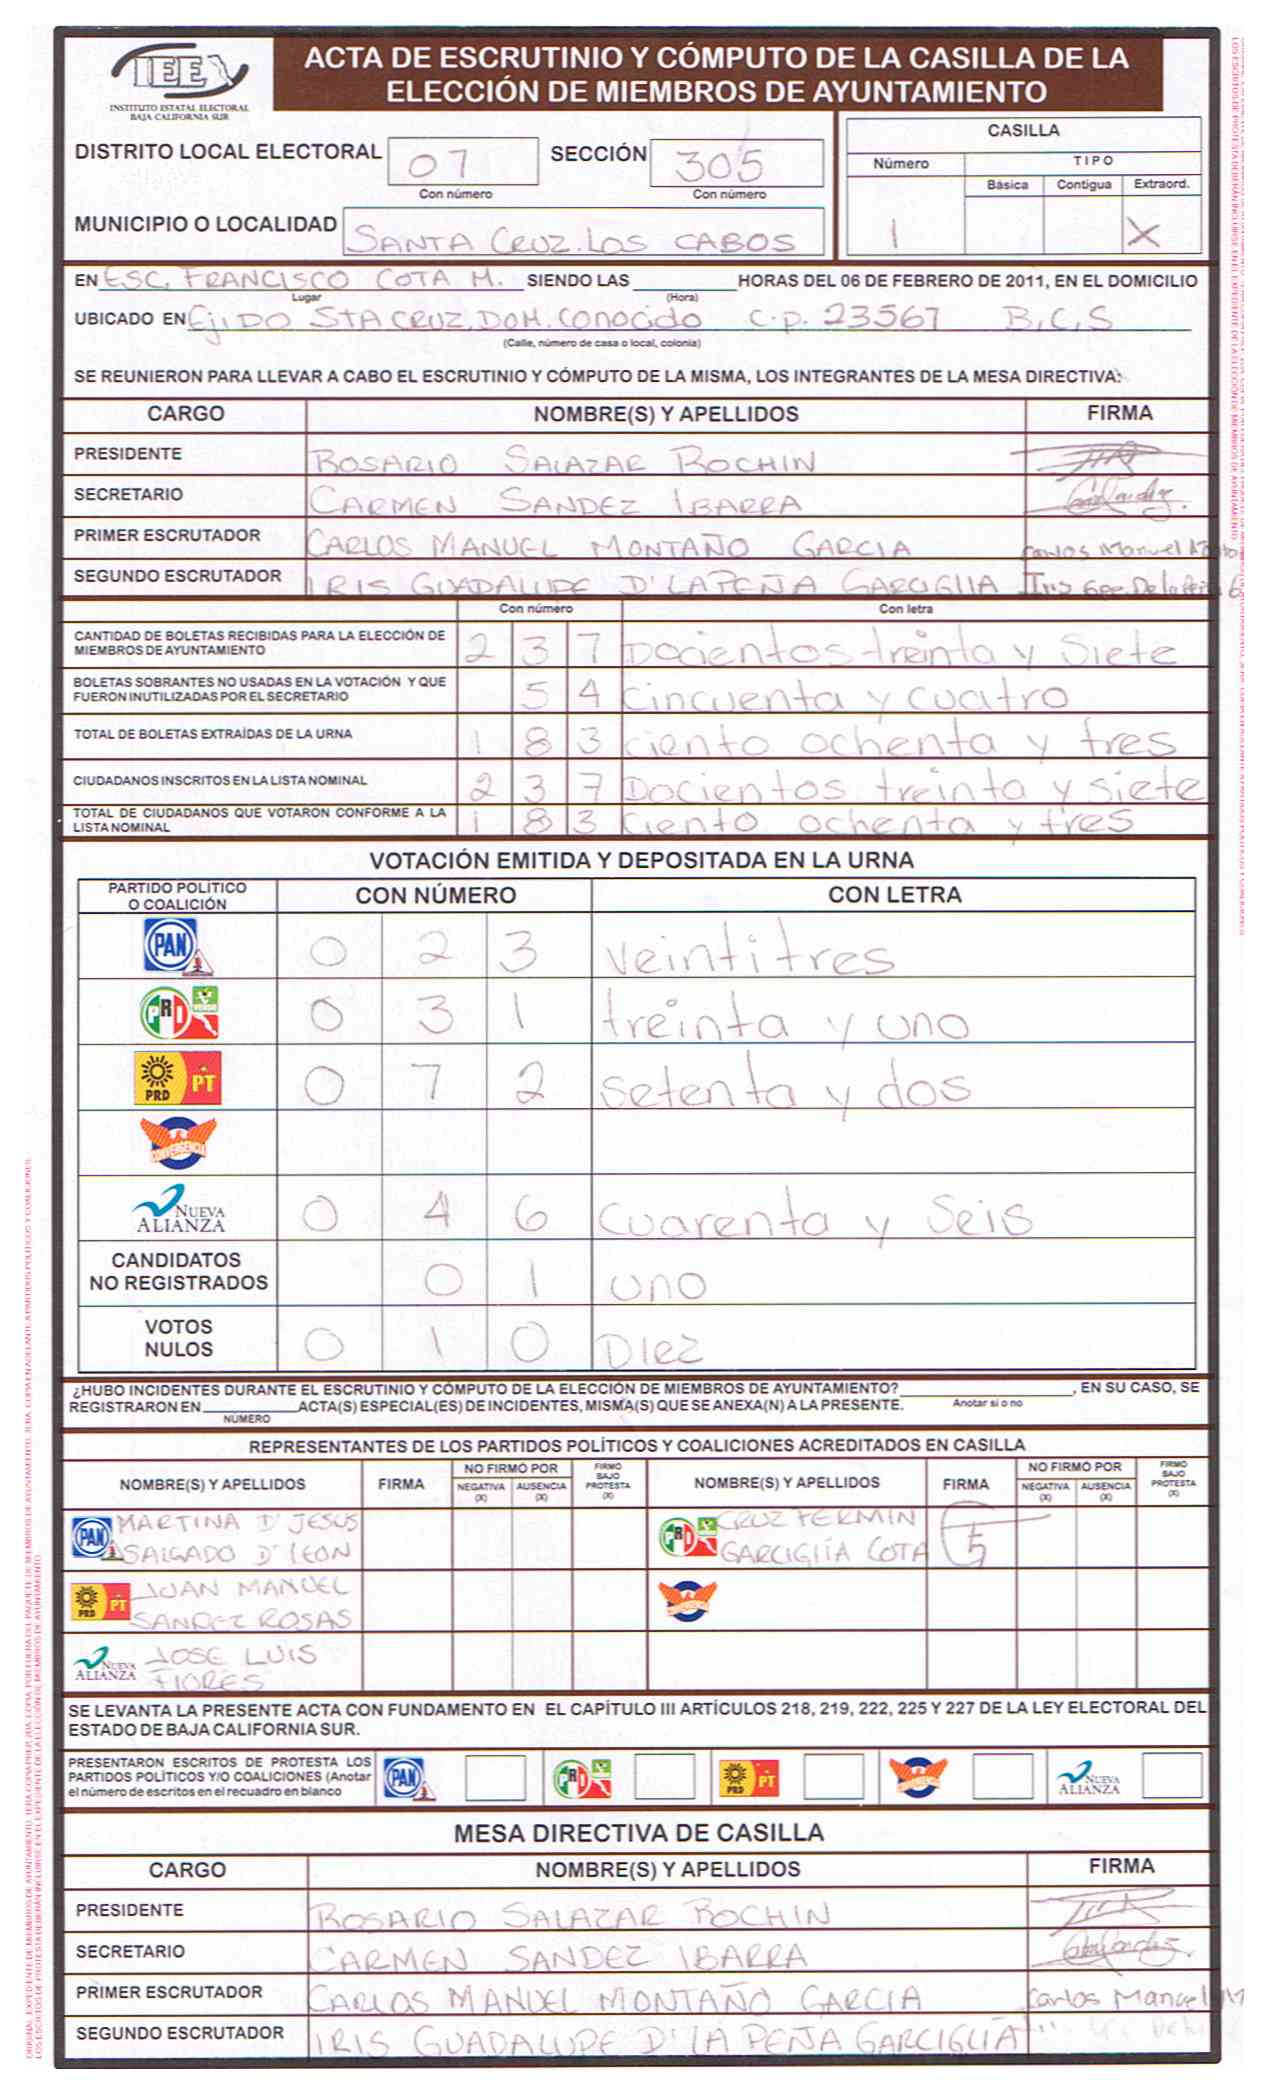 IEE
INSTITUTO ESTATAL ELECTORAL
BAJA CALIFORNIA SUR
ACTA DE ESCRUTINIO Y CÓMPUTO DE LA CASILLA DE LA
ELECCIÓN DE MIEMBROS DE AYUNTAMIENTO
DISTRITO LOCAL ELECTORAL 07 SECCIÓN 305
Con número Con número
MUNICIPIO O LOCALIDAD SANTA CRUZ. LOS CABOS
CASILLA
Número TIPO
Básica Contigua Extraord.
1 X
EN ESC. FRANCISCO COTA M. SIENDO LAS HORAS DEL 06 DE FEBRERO DE 2011, EN EL DOMICILIO
Lugar (Hora)
UBICADO EN EJIDO STA CRUZ. DOM. Conocido C.P. 23567 B.C.S
(Calle, número de casa o local, colonia)
SE REUNIERON PARA LLEVAR A CABO EL ESCRUTINIO Y CÓMPUTO DE LA MISMA, LOS INTEGRANTES DE LA MESA DIRECTIVA:
CARGO NOMBRE(S) Y APELLIDOS FIRMA
PRESIDENTE ROSARIO SALAZAR ROCHIN
SECRETARIO CARMEN SANDEZ IBARRA
PRIMER ESCRUTADOR CARLOS MANUEL MONTAÑO GARCIA Carlos Manuel
SEGUNDO ESCRUTADOR IRIS GUADALUPE D' LA PEÑA GARCIGLIA Iris Gpe. De la Peña G
Con número Con letra
CANTIDAD DE BOLETAS RECIBIDAS PARA LA ELECCIÓN DE
MIEMBROS DE AYUNTAMIENTO 2 3 7 Docientos treinta y Siete
BOLETAS SOBRANTES NO USADAS EN LA VOTACIÓN Y QUE
FUERON INUTILIZADAS POR EL SECRETARIO 5 4 cincuenta y cuatro
TOTAL DE BOLETAS EXTRAÍDAS DE LA URNA 1 8 3 ciento ochenta y tres
CIUDADANOS INSCRITOS EN LA LISTA NOMINAL 2 3 7 Docientos treinta y siete
TOTAL DE CIUDADANOS QUE VOTARON CONFORME A LA
LISTA NOMINAL 1 8 3 ciento ochenta y tres
VOTACIÓN EMITIDA Y DEPOSITADA EN LA URNA
PARTIDO POLÍTICO
O COALICIÓN CON NÚMERO CON LETRA
PAN 0 2 3 veintitres
PRI VERDE 0 3 1 treinta y uno
PRD PT 0 7 2 setenta y dos
CONVERGENCIA
NUEVA ALIANZA 0 4 6 cuarenta y Seis
CANDIDATOS
NO REGISTRADOS 0 1 uno
VOTOS
NULOS 0 1 0 Diez
¿HUBO INCIDENTES DURANTE EL ESCRUTINIO Y CÓMPUTO DE LA ELECCIÓN DE MIEMBROS DE AYUNTAMIENTO? , EN SU CASO, SE
REGISTRARON EN ACTA(S) ESPECIAL(ES) DE INCIDENTES, MISMA(S) QUE SE ANEXA(N) A LA PRESENTE. Anotar si o no
NÚMERO
REPRESENTANTES DE LOS PARTIDOS POLÍTICOS Y COALICIONES ACREDITADOS EN CASILLA
NOMBRE(S) Y APELLIDOS FIRMA NO FIRMÓ POR NEGATIVA (X) AUSENCIA (X) FIRMÓ BAJO PROTESTA (X) NOMBRE(S) Y APELLIDOS FIRMA NO FIRMÓ POR NEGATIVA (X) AUSENCIA (X) FIRMÓ BAJO PROTESTA (X)
PAN MARTINA D' JESUS PRI CRUZ FERMIN
SALGADO D' LEON GARCIGLIA COTA
PRD PT JUAN MANUEL
SANDEZ ROSAS
NUEVA ALIANZA JOSE LUIS
FLORES
SE LEVANTA LA PRESENTE ACTA CON FUNDAMENTO EN EL CAPÍTULO III ARTÍCULOS 218, 219, 222, 225 Y 227 DE LA LEY ELECTORAL DEL
ESTADO DE BAJA CALIFORNIA SUR.
PRESENTARON ESCRITOS DE PROTESTA LOS
PARTIDOS POLÍTICOS Y/O COALICIONES (Anotar
el número de escritos en el recuadro en blanco PAN PRI PRD PT NUEVA ALIANZA
MESA DIRECTIVA DE CASILLA
CARGO NOMBRE(S) Y APELLIDOS FIRMA
PRESIDENTE ROSARIO SALAZAR ROCHIN
SECRETARIO CARMEN SANDEZ IBARRA
PRIMER ESCRUTADOR CARLOS MANUEL MONTAÑO GARCIA Carlos Manuel M
SEGUNDO ESCRUTADOR IRIS GUADALUPE D' LA PEÑA GARCIGLIA